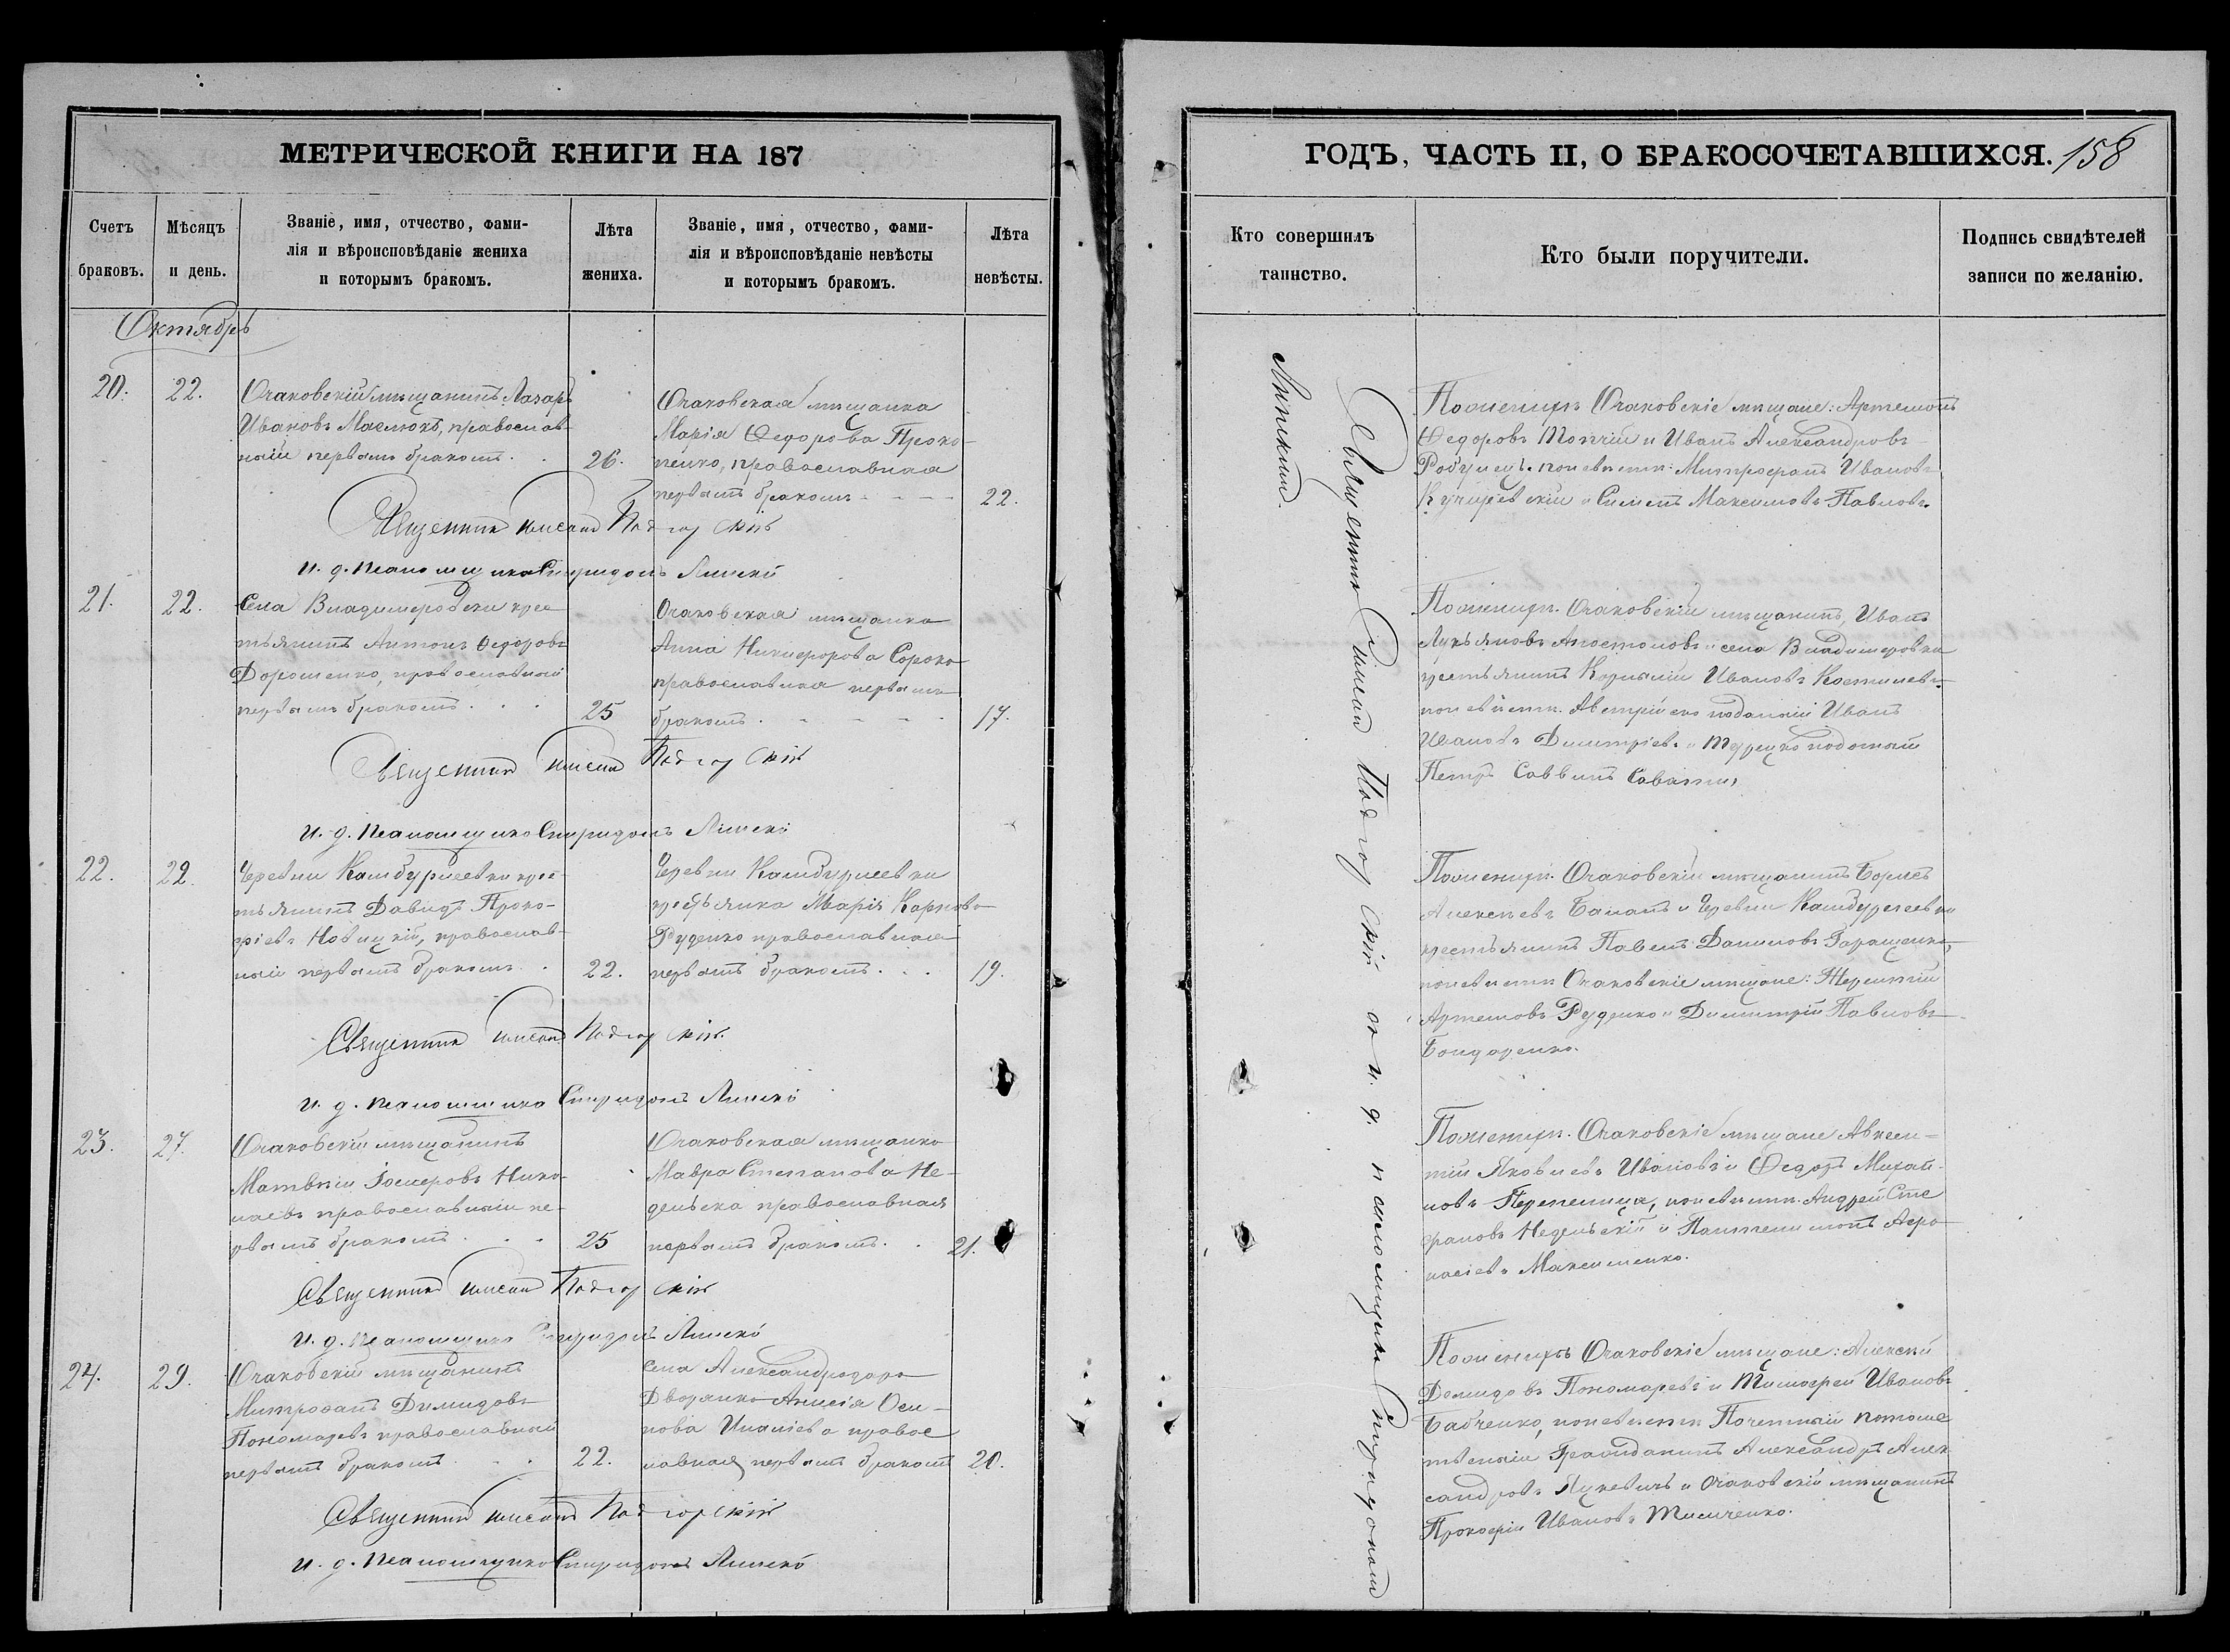 МЕТРИЧЕСКОЙ КНИГИ НА 187
Счетъ браковъ.
Мѣсяцъ и день.
Званіе, имя, отчество, фами-
лія и вѣроисповѣданіе жениха
и которымъ бракомъ.
Лѣта жениха.
Званіе, имя, отчество, фами-
лія и вѣроисповѣданіе невѣсты
и которымъ бракомъ.
Лѣта невѣсты.
Октябрь
20.
22.
Очаковскій мѣщанинъ Лазарь
Ивановъ Маслюкъ, православ-
ный первымъ бракомъ.
26.
Очаковская мѣщанка
Марія Ѳедорова Проко-
пенко, православная
первымъ бракомъ
22.
Священникъ Симеонъ Подгорскій
и. д. псаломщика Спиридонъ
21.
22.
Села Владимеровки крес
тьянинъ Антонъ Ѳедоровъ
Дорошенко, православный
первымъ бракомъ.
25
Очаковская мѣщанка
Анна Никифорова Сороко
православная первымъ
бракомъ.
17.
Священникъ Симеонъ Подгорскій
и. д. псаломщика Спиридонъ
22.
22.
Деревни Камбурлеевки крес
тьянинъ Давидъ Проко-
фіевъ Новицкій, православ-
ный первымъ бракомъ.
22.
Деревни Камбурлеевки
крестьянка Марія Карпова
Руденко православная
первымъ бракомъ.
19.
Священникъ Симеонъ Подгорскій
и. д. псаломщика Спиридонъ
23.
27.
Очаковскій мѣщанинъ
Матвѣй Іосифовъ Нико-
лаевъ православный пе-
рвымъ бракомъ.
25
Очаковская мѣщанка
Мавра Степанова Не-
дельска православная
первымъ бракомъ.
21.
Священникъ Симеонъ Подгорскій
и. д. псаломщика Спиридонъ
24.
29.
Очаковскій мѣщанинъ
Митрофанъ Димидовъ
Пономаревъ православный
первымъ бракомъ
22.
села Александродара
Дворянка Анисія Оси-
пова православ
славная, первымъ бракомъ
20.
Священникъ Симеонъ Подгорскій
и. д. псаломщика Спиридонъ
ГОДЪ, ЧАСТЬ II, О БРАКОСОЧЕТАВШИХСЯ. 158
Кто совершилъ таинство.
Кто были поручители.
Подпись свидѣтелей записи по желанію.
Священникъ Симеонъ Подгорскій съ и. д. псаломщика Спиридономъ
По женихѣ Очаковскіе мѣщане: Артемонъ
Ѳедоровъ Топчій и Иванъ Александровъ
по невѣстѣ: Митрофанъ Ивановъ
и Максимовъ Павловъ.
По женихѣ. Очаковскій мѣщанинъ, Иванъ
Лукьяновъ Апостоловъ и села Владимеровки
крестьянинъ Корнилій Ивановъ
по невѣстѣ. Австрійско подданый Иванъ
Ивановъ Димитріевъ и Турецко поданый
Петръ Саввинъ
По женихѣ. Очаковскій мѣщанинъ Борисъ
Алексѣевъ и деревни Камбурлеевки
крестьянинъ Павелъ Даниловъ
по невѣстѣ Очаковскіе мѣщане: Терентій
Артемовъ Руденко и Димитрій Павловъ
Бондаренко.
По женихѣ. Очаковскіе мѣщане Авксен-
тій Яковлевъ Ивановъ и Ѳедоръ Михай-
ловъ Перепелица, по невѣстѣ. Андрей Сте
фановъ Недельскій и Пантелимонъ Афа-
насіевъ Максименко.
По женихѣ Очаковскіе мѣщане: Алексѣй
Демидовъ Пономаревъ и Тимофей Ивановъ
Бабченко, по невѣстѣ Почетный потомс
твеный Гражданинъ Александръ Алек
сандровъ Яцкевичъ и Очаковскій мѣщанинъ
Прокофій Ивановъ Тимченко.